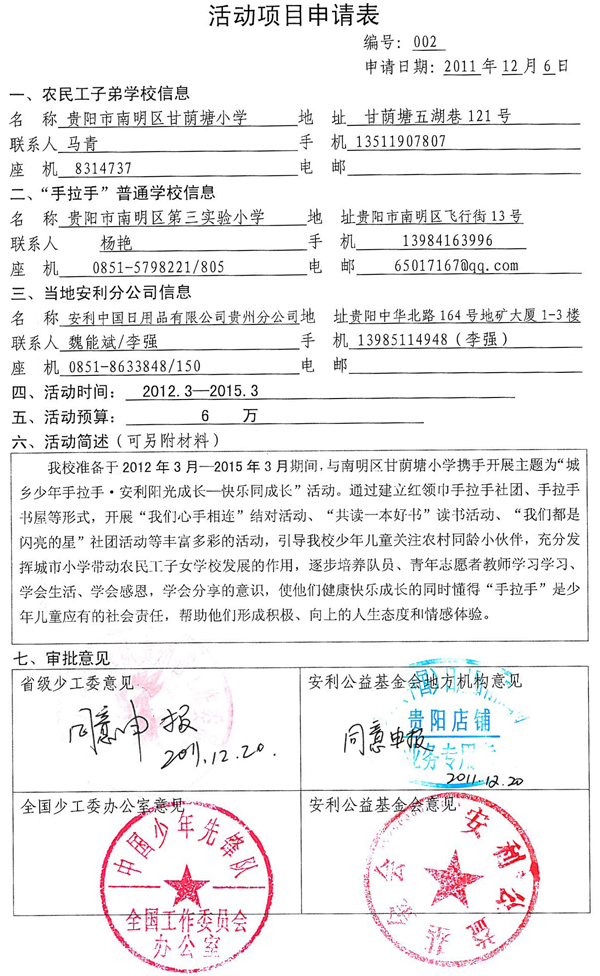 活动项目申请表
编号: 002
申请日期: 2011 年 12 月 6 日
一、农民工子弟学校信息
名 称 贵阳市南明区甘荫塘小学 地 址 甘荫塘五湖巷 121 号
联系人 马青 手 机 13511907807
座 机 8314737 电 邮
二、“手拉手”普通学校信息
名 称 贵阳市南明区第三实验小学 地 址 贵阳市南明区飞行街 13 号
联系人 杨艳 手 机 13984163996
座 机 0851-5798221/805 电 邮 65017167@qq.com
三、当地安利分公司信息
名 称 安利中国日用品有限公司贵州分公司 地 址 贵阳中华北路 164 号地矿大厦 1-3 楼
联系人 魏能斌/李强 手 机 13985114948(李强)
座 机 0851-8633848/150 电 邮
四、活动时间: 2012.3—2015.3
五、活动预算: 6 万
六、活动简述(可另附材料)
我校准备于 2012 年 3 月—2015 年 3 月期间,与南明区甘荫塘小学携手开展主题为“城
乡少年手拉手·安利阳光成长—快乐同成长”活动。通过建立红领巾手拉手社团、手拉手
书屋等形式,开展“我们心手相连”结对活动、“共读一本好书”读书活动、“我们都是
闪亮的星”社团活动等丰富多彩的活动,引导我校少年儿童关注农村同龄小伙伴,充分发
挥城市小学带动农民工子女学校发展的作用,逐步培养队员、青年志愿者教师学习学习、
学会生活、学会感恩,学会分享的意识,使他们健康快乐成长的同时懂得“手拉手”是少
年儿童应有的社会责任,帮助他们形成积极、向上的人生态度和情感体验。
七、审批意见
省级少工委意见 安利公益基金会地方机构意见
同意申报 2011.12.20.
贵阳店铺
业务专用
同意申报 2011.12.20
全国少工委办公室意见 安利公益基金会意见
中国少年先锋队
全国工作委员会
办公室
安利公益基金会